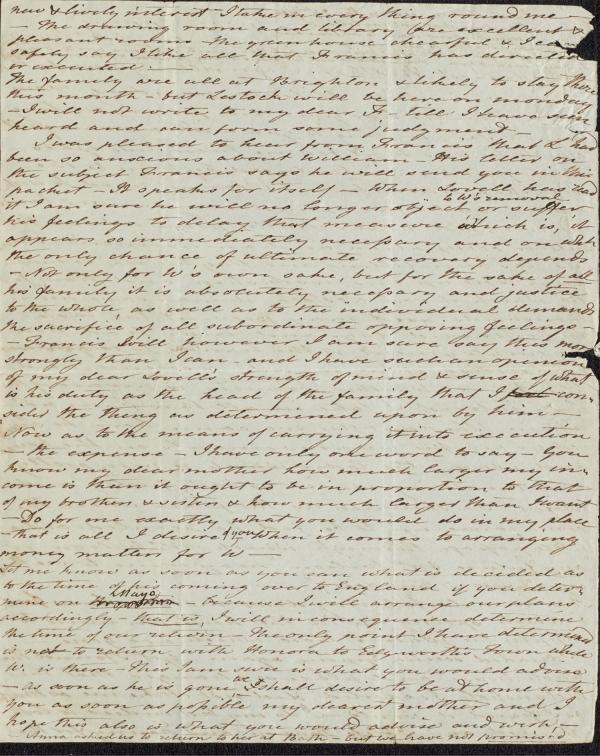 new & lively interest I take in every thing round me —
The drawing room and library are excellent &
pleasant rooms the greenhouse cheerful & I can
safely say I like all that Francis has directed
or executed —
The family are all at Brighton & likely to stay there
this month — but Lestock will be here on monday
— I will not write to my dear F. till I have seen
heard and can form some judgment —
I was pleased to hear from Francis that L had
been so anxious about William His letter on
the subject Francis says he will send you in this
packet — It speaks for itself — When Lovell has read
it I am sure he will no longer object to W's removal or suffer
his feelings to delay that measure which is, it
appears so immediately necessary and on which
the only chance of ultimate recovery depends
— Not only for W's own sake, but for the sake of all
his family it is absolutely necessary and justice
to the whole, as well as to the individual demands
the sacrifice of all subordinate opposing feelings —
— Francis will however I am sure say this more
strongly than I can and I have such an opinion
of my dear Lovell's strength of mind & sense of what
is his duty as the head of the family that I con-
sider the thing as determined upon by him —
Now as to the means of carrying it into execution
— the expense — I have only one word to say — You
know my dear mother how much larger my in-
come is than it ought to be in proportion to that
of my brothers & sisters & how much larger than I want
— Do for me exactly what you would do in my place
— that is all I desire of you when it comes to arranging
money matters for W —
Let me know as soon as you can what is decided as
to the time of his coming over to England if you deter-
mine on — because I will arrange our plans
accordingly — that is, I will in consequence determine
the time of our return — The only point I have determined
is not to return with Honora to Edgeworth's Town while
W. is there — this I am sure is what you would advise
— as soon as he is gone, we I shall desire to be at home with
you as soon as possible my dearest mother and I
hope this also is what you would advise and wish, —
Anna asked us to return to her at Bath — but we have not promised